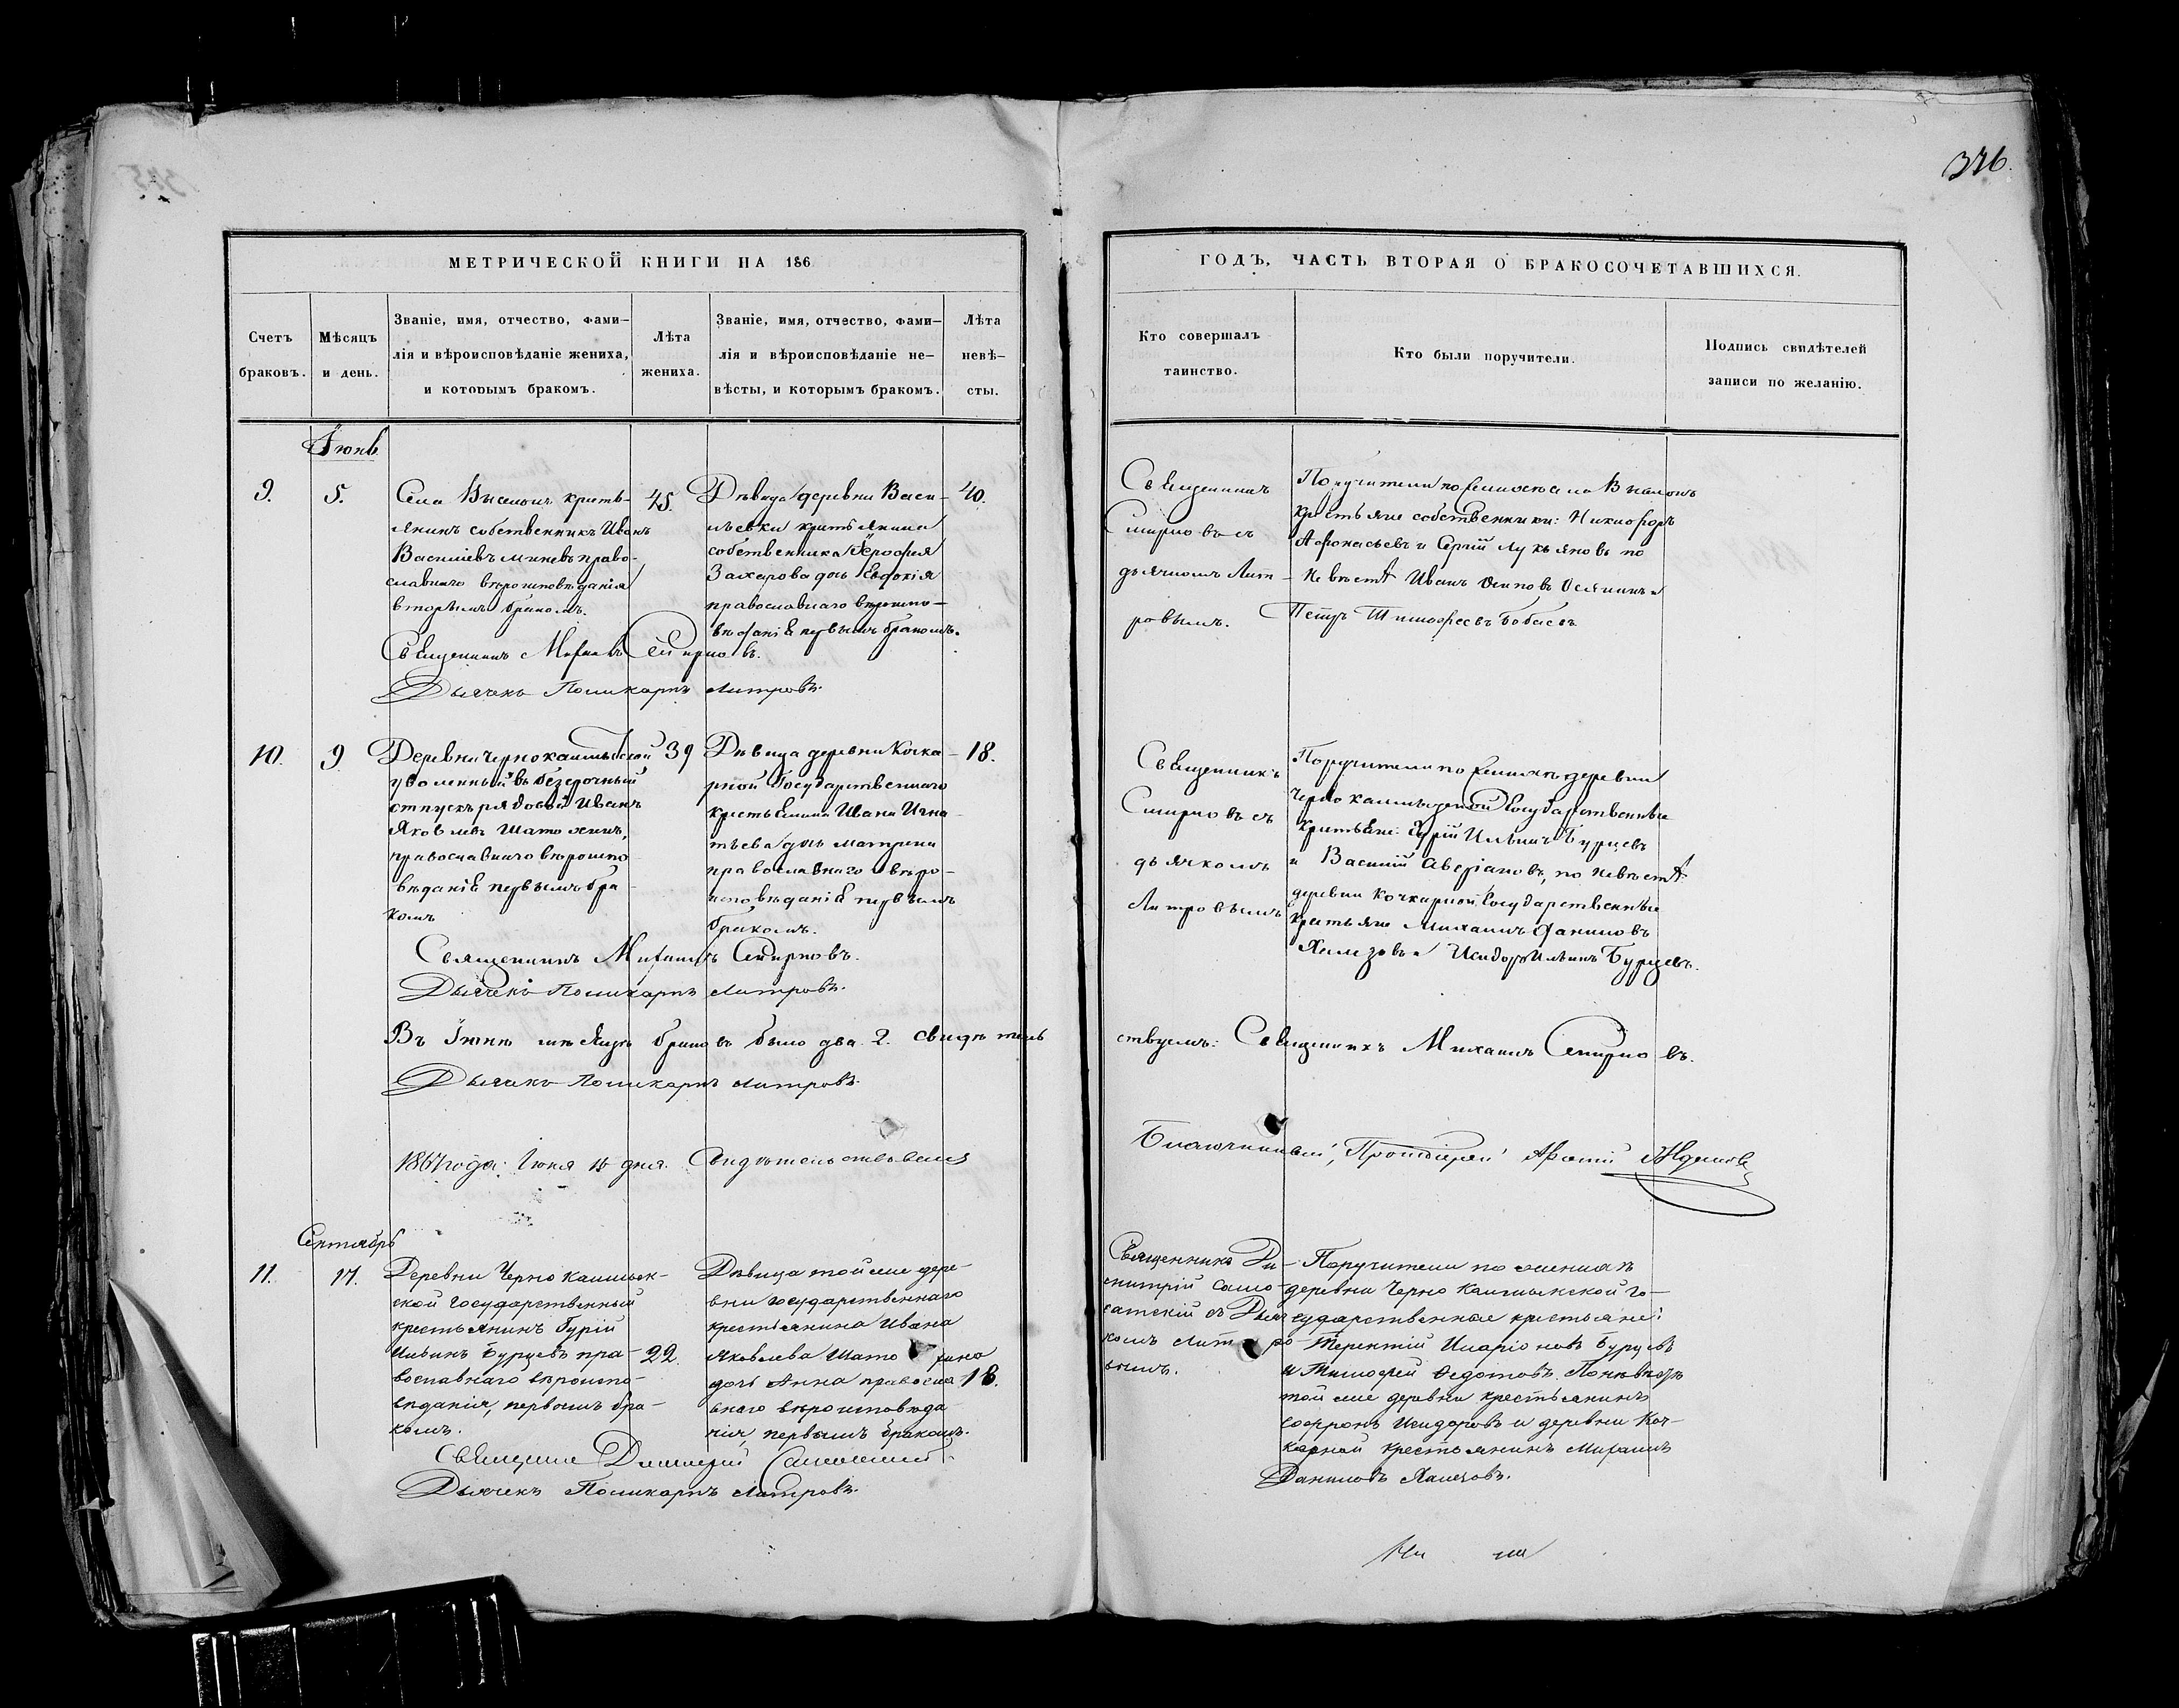 376.
МЕТРИЧЕСКОЙ КНИГИ НА 186
ГОДЪ, ЧАСТЬ ВТОРАЯ О БРАКОСОЧЕТАВШИХСЯ.
Счетъ
браковъ.
Мѣсяцъ
и день.
Званіе, имя, отчество, фами-
лія и вѣроисповѣданіе жениха,
и которымъ бракомъ.
Лѣта
жениха.
Званіе, имя, отчество, фами-
лія и вѣроисповѣданіе не-
вѣсты, и которымъ бракомъ.
Лѣта
невѣ-
сты.
Кто совершалъ
таинство.
Кто были поручители.
Подпись свидѣтелей
записи по желанію.
Іюнь
9.
5.
Села кресть-
янинъ собственникъ Иванъ
Василіевъ право-
славнаго вѣроисповѣданія
вторымъ бракомъ.
45.
Дѣвица деревни Васи-
льевки крестьянина
собственника Ерофея
Захарова дочь Евдокія
православнаго вѣроиспо-
вѣданія первымъ бракомъ.
40.
Священникъ
Смирновъ съ
дьячкомъ Лит-
ровымъ.
Поручители по женихѣ села
крестьяне собственники: Никифоръ
Афонасьевъ и Сергій Лукьяновъ по
невѣстѣ Иванъ Осиповъ и
Петръ Тимофеевъ
Священникъ Михаилъ Смирновъ.
Дьячекъ Поликарпъ Литровъ.
10.
9
Деревни Чернокалмыкской
уволенный въ безсрочный
отпускъ рядовой Иванъ
Яковлевъ Шатохинъ,
православнаго вѣроиспо-
вѣданія первымъ бра-
комъ
39
Дѣвица деревни Кочка-
рной Государственнаго
крестьянина Ивана Игна-
тьева дочь Матрена
православнаго вѣро-
исповѣданія первымъ
бракомъ.
18.
Священникъ
Смирновъ съ
дьячкомъ
Литровымъ
Поручители по женихѣ деревни
Чернокалмыкской Государственные
крестьяне: Гурій Ильинъ Бурцевъ
и Василій Аверіановъ, по невѣстѣ
деревни Кочкарной Государственные
крестьяне Михаилъ Даниловъ
и Исидоръ Ильинъ Бурцевъ.
Священникъ Михаилъ Смирновъ.
Дьячекъ Поликарпъ Литровъ.
Въ Іюнѣ мѣсяцѣ браковъ было два. 2. свидѣтель
ствуемъ: Священникъ Михаилъ Смирновъ.
Дьячекъ Поликарпъ Литровъ.
1867 года: Іюня дня. Свидѣтельствовалъ
Благочинный, Протоіерей
Сентябрь
11.
17.
Деревни Чернокалмык-
ской государственный
крестьянинъ Гурій
Ильинъ Бурцевъ пра-
вославнаго вѣроиспо-
вѣданія, первымъ бра-
комъ.
22.
Дѣвица той же дере-
вни государственнаго
крестьянина Ивана
Яковлева Шатохина
дочь Анна правосла-
внаго вѣроисповѣда
нія, первымъ бракомъ.
18.
Священникъ Ди-
митрій Само-
сатскій съ Дьяч
комъ Литро
вымъ.
Поручители по женихѣ
деревни Чернокалмыкской го-
сударственные крестьяне:
Терентій Иларіоновъ Бурцевъ
и Тимофей Ѳедотовъ. По невѣстѣ
той же деревни крестьянинъ
Софронъ Исидоровъ и деревни Коч-
карной крестьянинъ Михаилъ
Даниловъ
Священникъ Димитрій Самосатскій.
Дьячекъ Поликарпъ Литровъ.